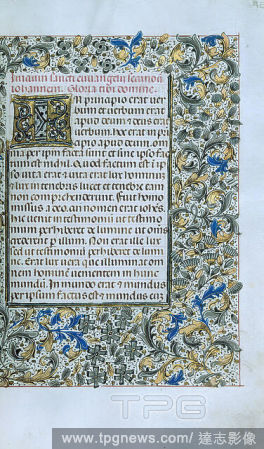 Iniciũ sancti euangelij secundũ
Iohannem. Gloria tibi domine.
In principio erat ver
bum et verbum erat
apud deum et deus erat
verbum. hoc erat in pri
cipio apud deum. om
nia per ipsum facta sunt et sine ipso fac
tum est nichil. Quod factum est i ip
so vita erat et vita erat lux hominũ
et lux in tenebris lucet et tenebre eam
non comprehenderunt. Fuit homo
missus a deo cui nomen erat iohẽs.
hic uenit in testimoniũ ut testimo
nium perhiberet de lumine ut om̃s
crederent per illum. Non erat ille lux
sed ut testimoniũ perhiberet de lumi
ne. Erat lux vera que illuminat om
nem hominẽ uenientem in hunc
mundũ. In mundo erat et mundus
per ipsum factus est et mundus eũ
TPG
www.tpgnews.com / 達志影像